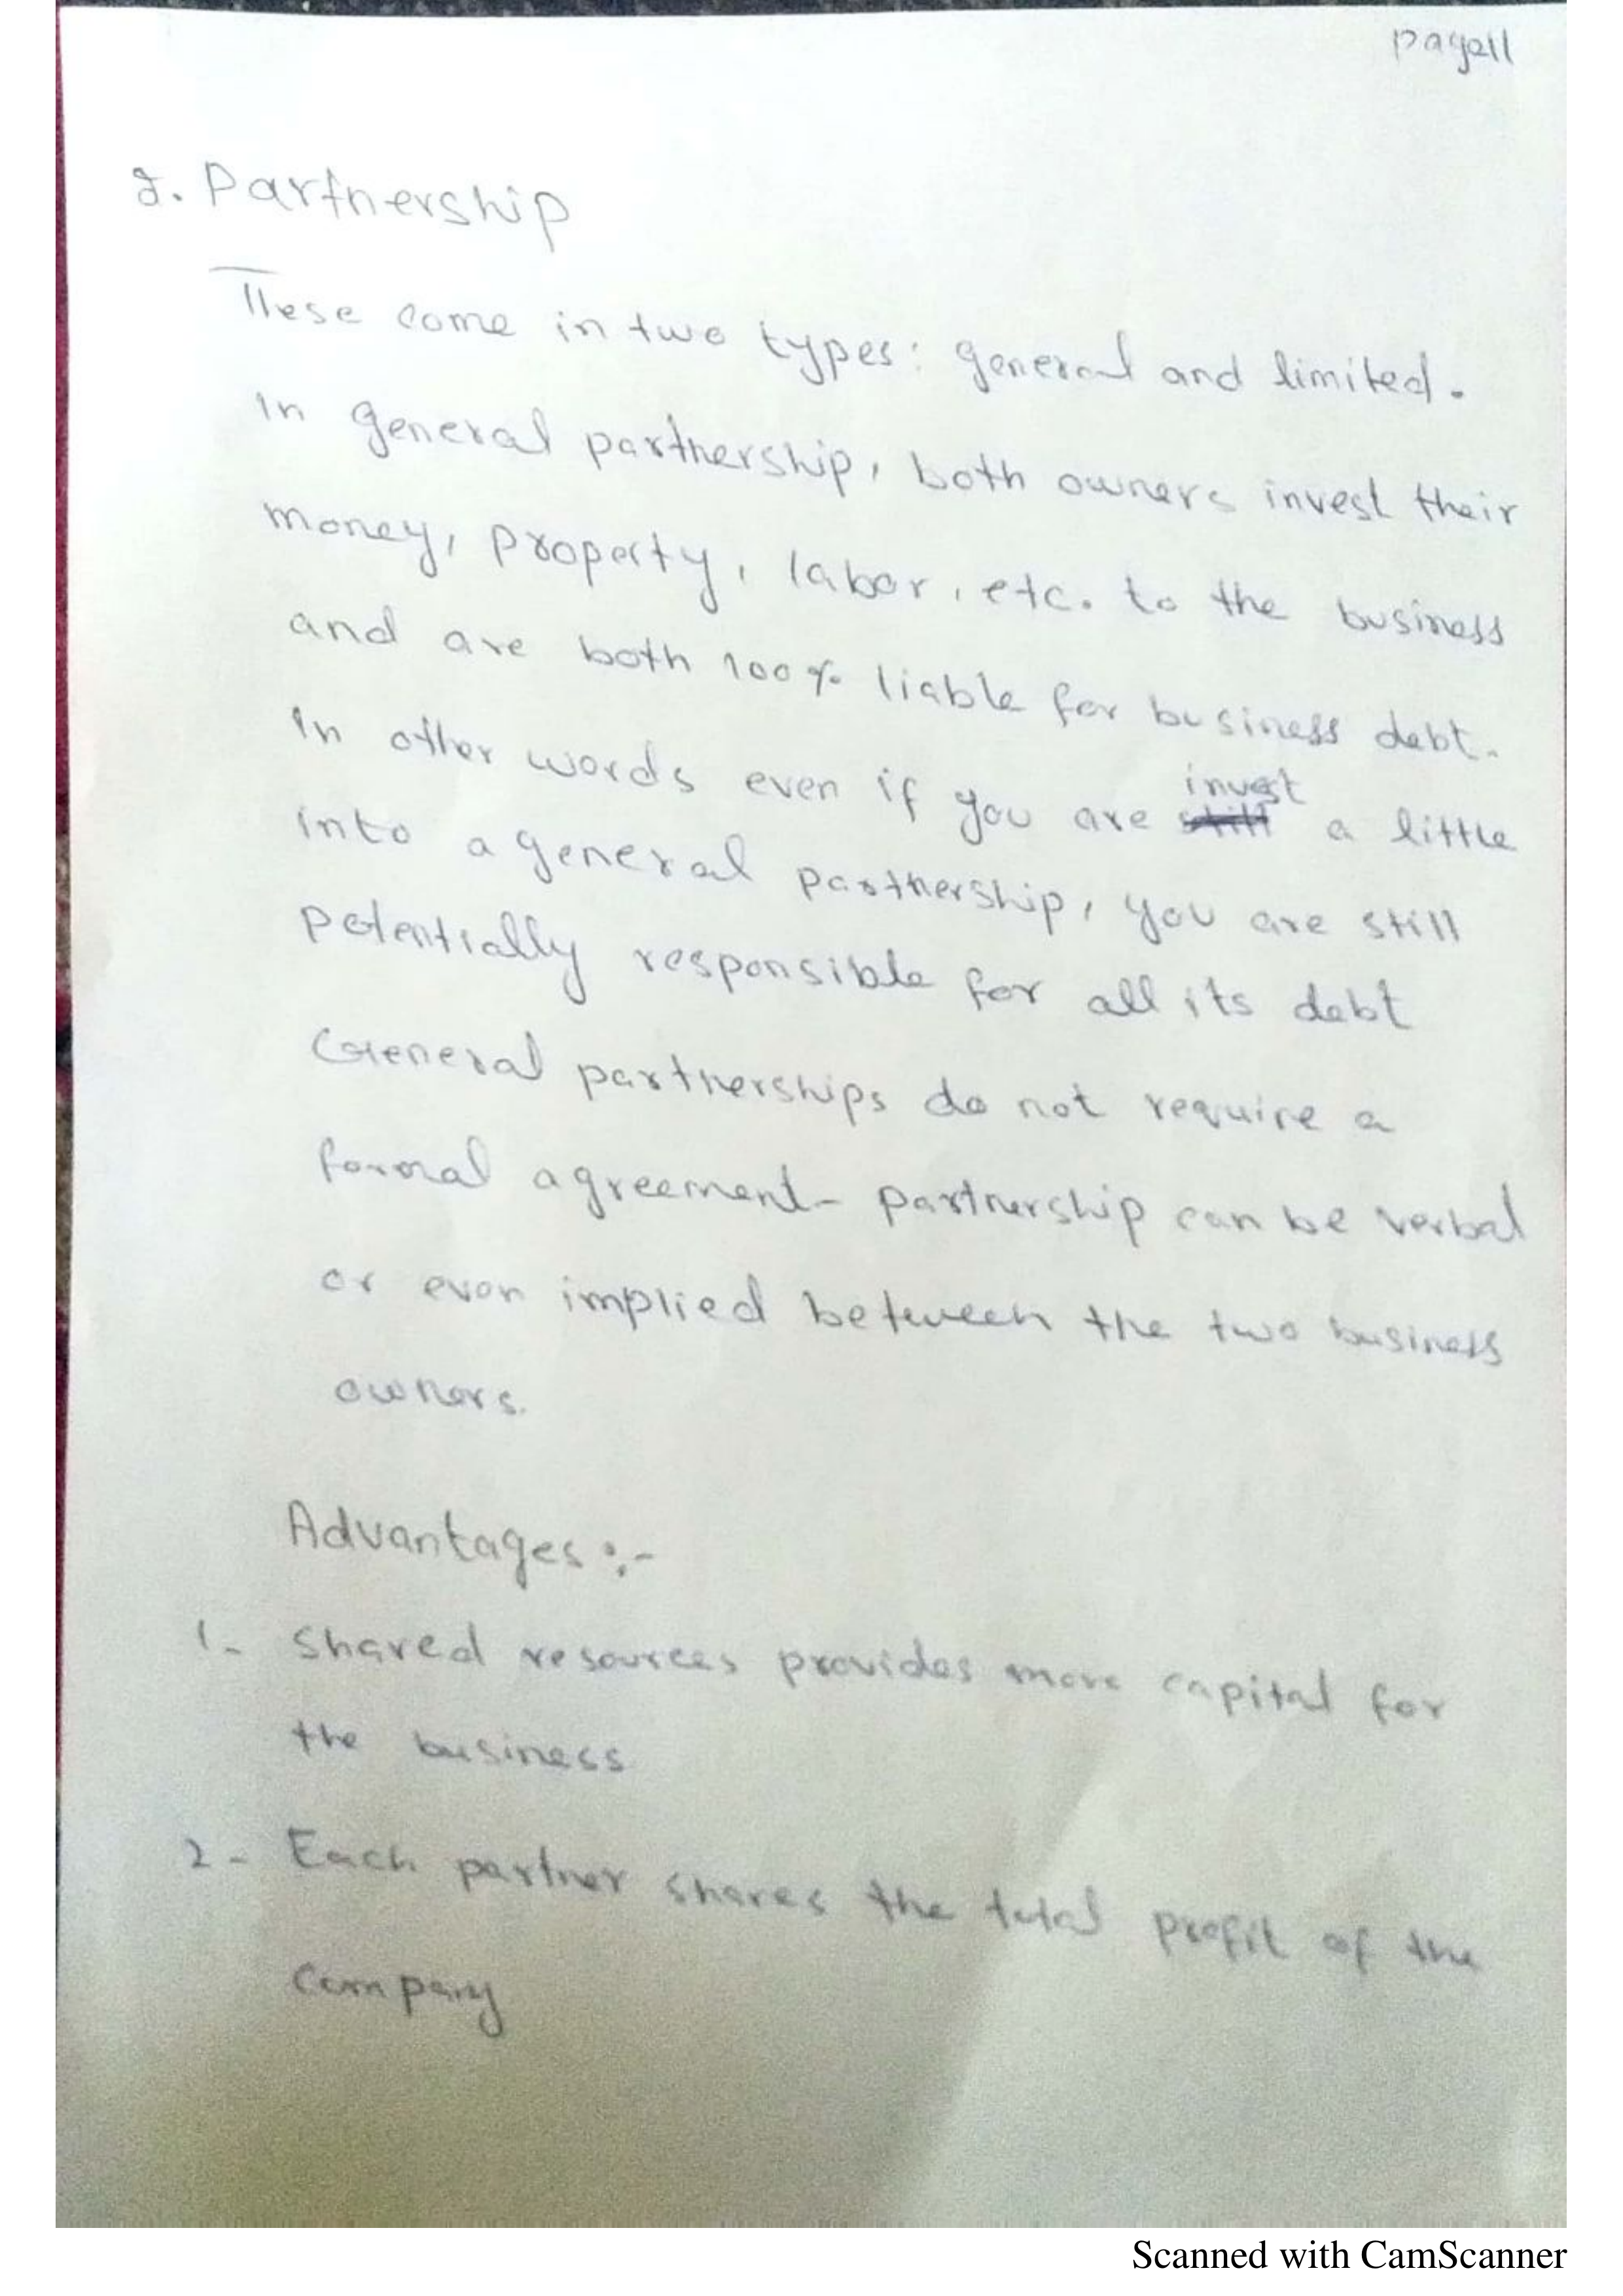 page11
2. Partnership
These come in two types: general and limited.
In general partnership, both owners invest their
money, property, labor, etc. to the business
and are both 100% liable for business debt.
In other words even if you are invest a little
into a general partnership, you are still
potentially responsible for all its debt
General partnerships do not require a
formal agreement- partnership can be verbal
or even implied between the two business
owners.
Advantages :-
1- Shared resources provides more capital for
the business
2- Each partner shares the total profit of the
company
Scanned with CamScanner